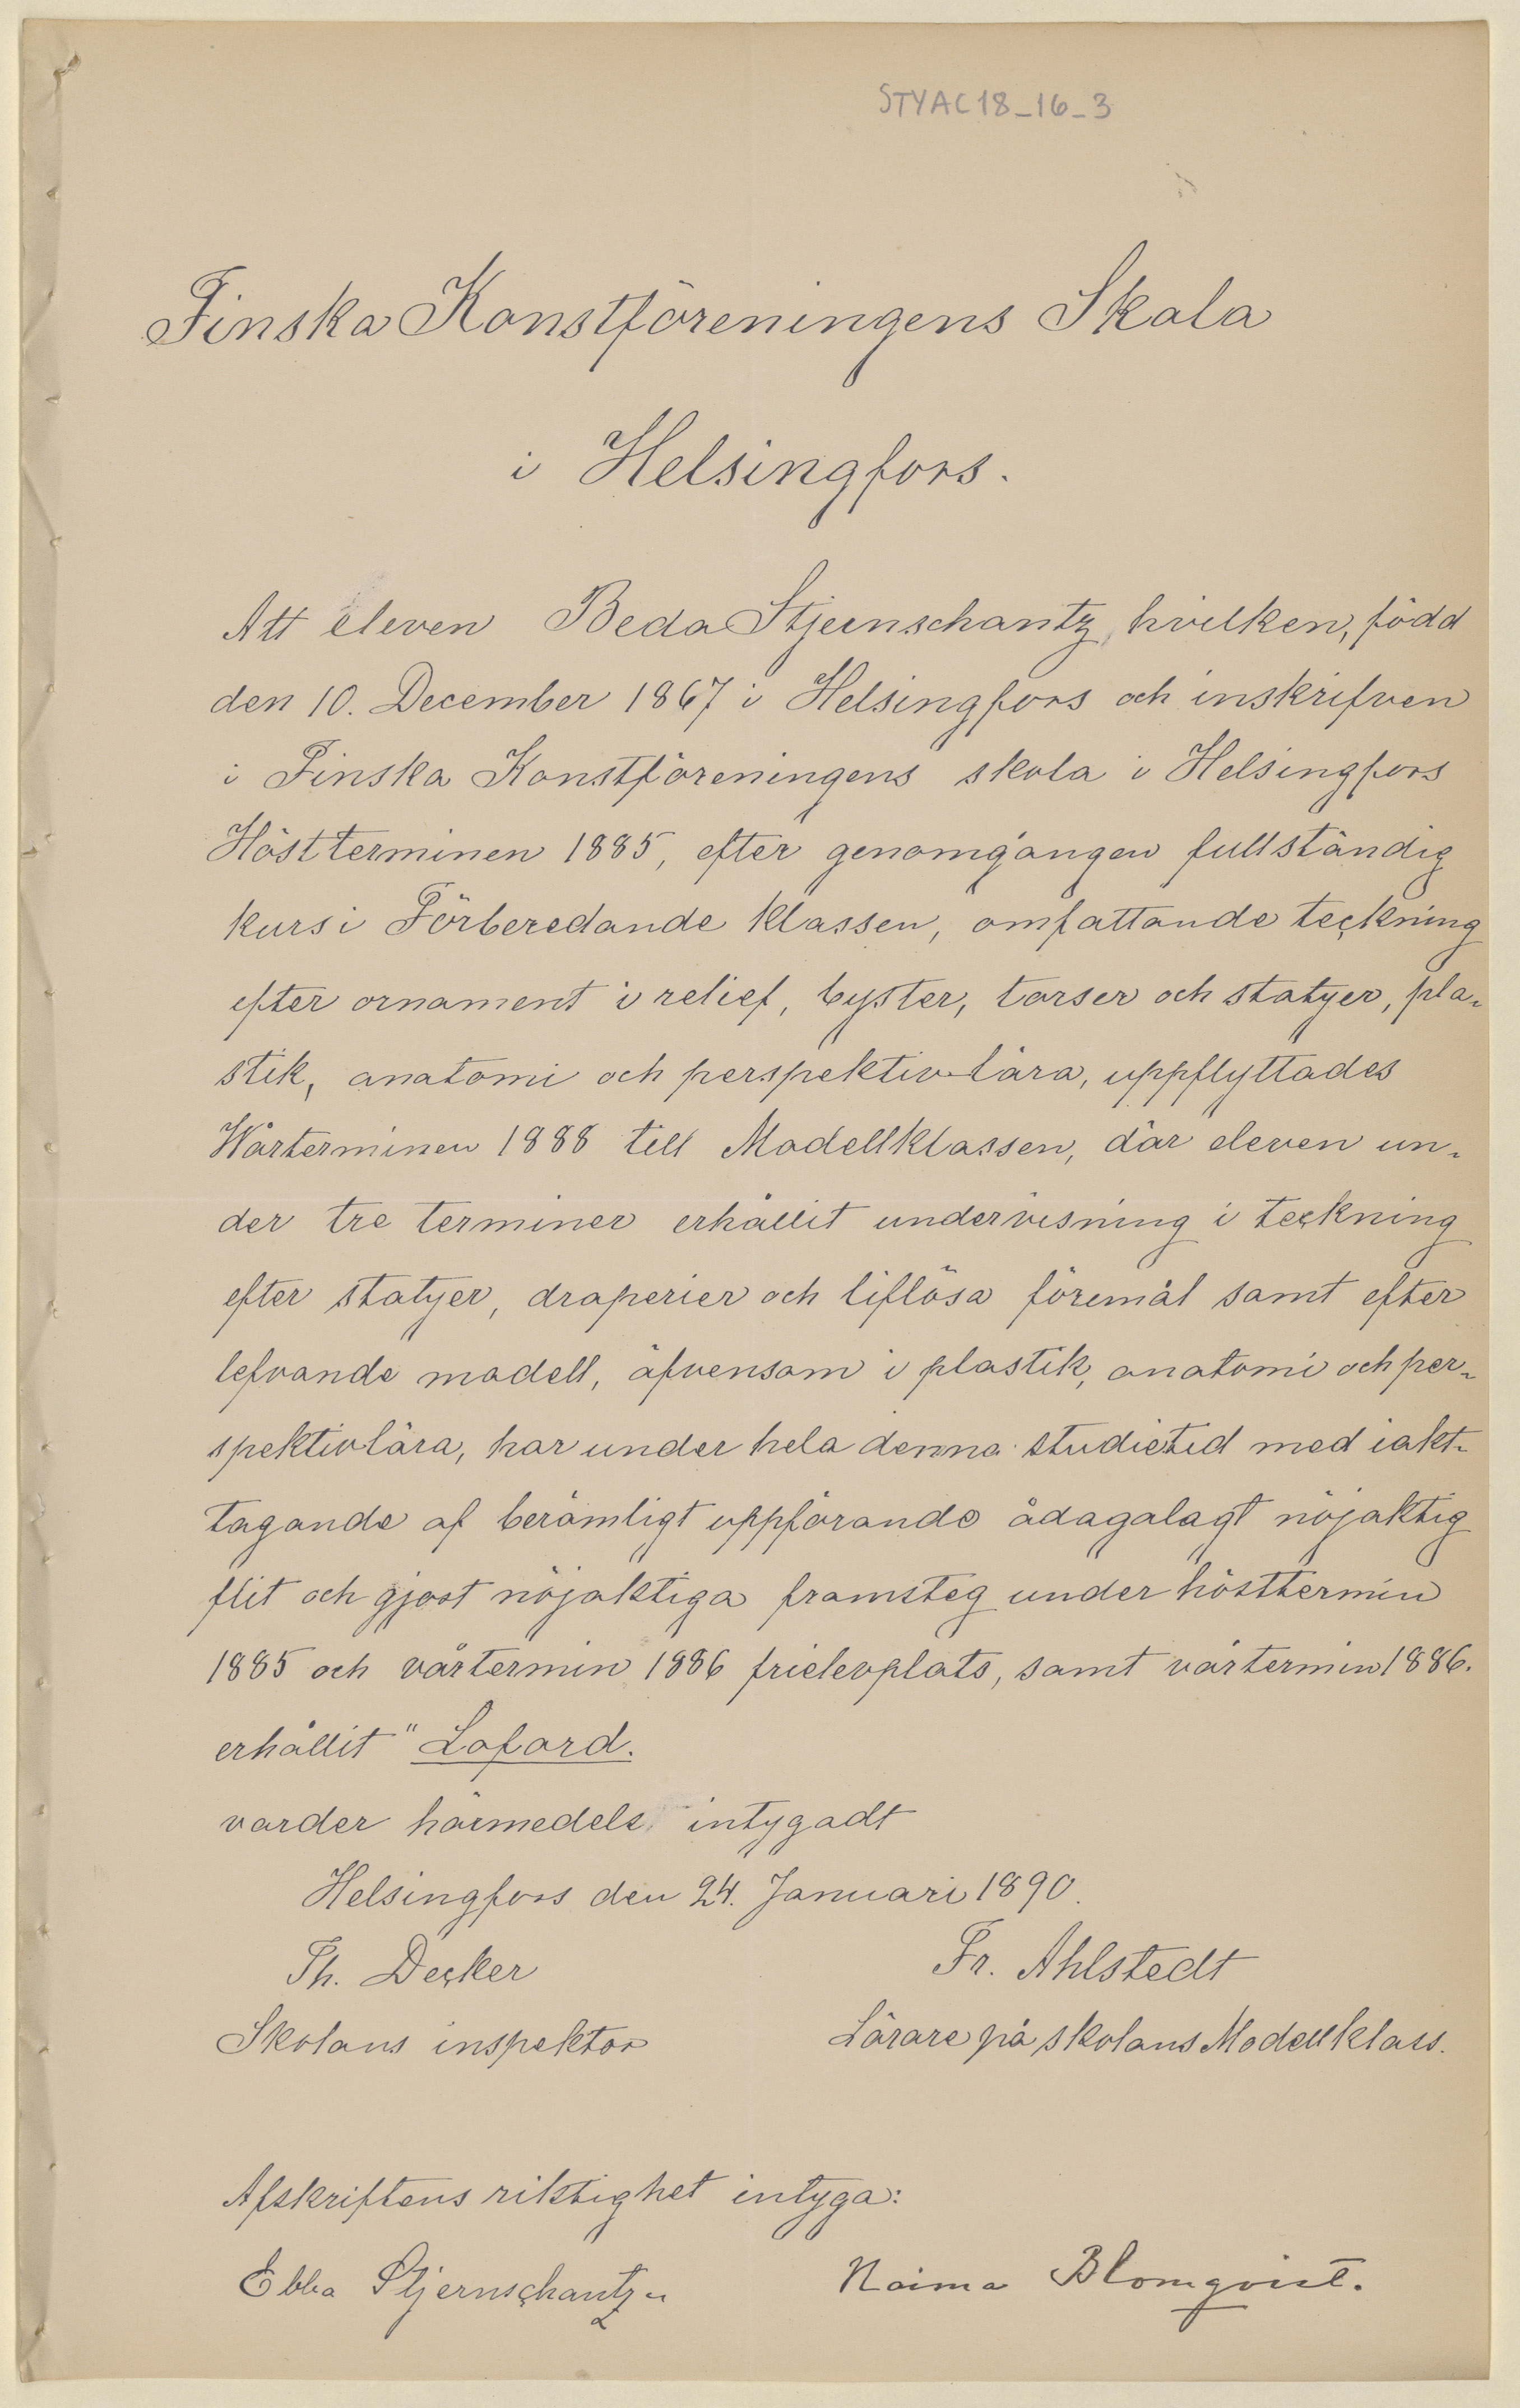 STYAC18_16_3
Finska Konstföreningens Skola
i Helsingfors.
Att eleven Beda Stjernschantz, hvilken, född
den 10. December 1867 i Helsingfors och inskrifven
i Finska Konstföreningens skola i Helsingfors
Höstterminen 1885, efter genomgången fullständig
kurs i Förberedande klassen, omfattande teckning
efter ornament i relief, byster, torser och statyer, pla-
stik, anatomi och perspektivlära, uppflyttades
Wårterminen 1888 till Modellklassen, där eleven un-
der tre terminer erhållit undervisning i teckning
efter statyer, draperier och liflösa föremål samt efter
lefvande modell, äfvensom i plastik, anatomi och per-
spektivlära, har under hela denna studietid med iakt-
tagande af berömligt uppförande ådagalagt nöjaktig
flit och gjort nöjaktiga framsteg under hösttermin
1885 och vårtermin 1886 frielevplats, samt vårtermin 1886.
erhållit " Loford.
varder härmedels intygadt
Helsingfors den 24. Januari 1890.
Th. Decker
Fr. Ahlstedt
Skolans inspektor
Lärare på skolans Modellklass.
Afskriftens riktighet intyga:
Ebba Stjernschantz
Naima Blomqvist.